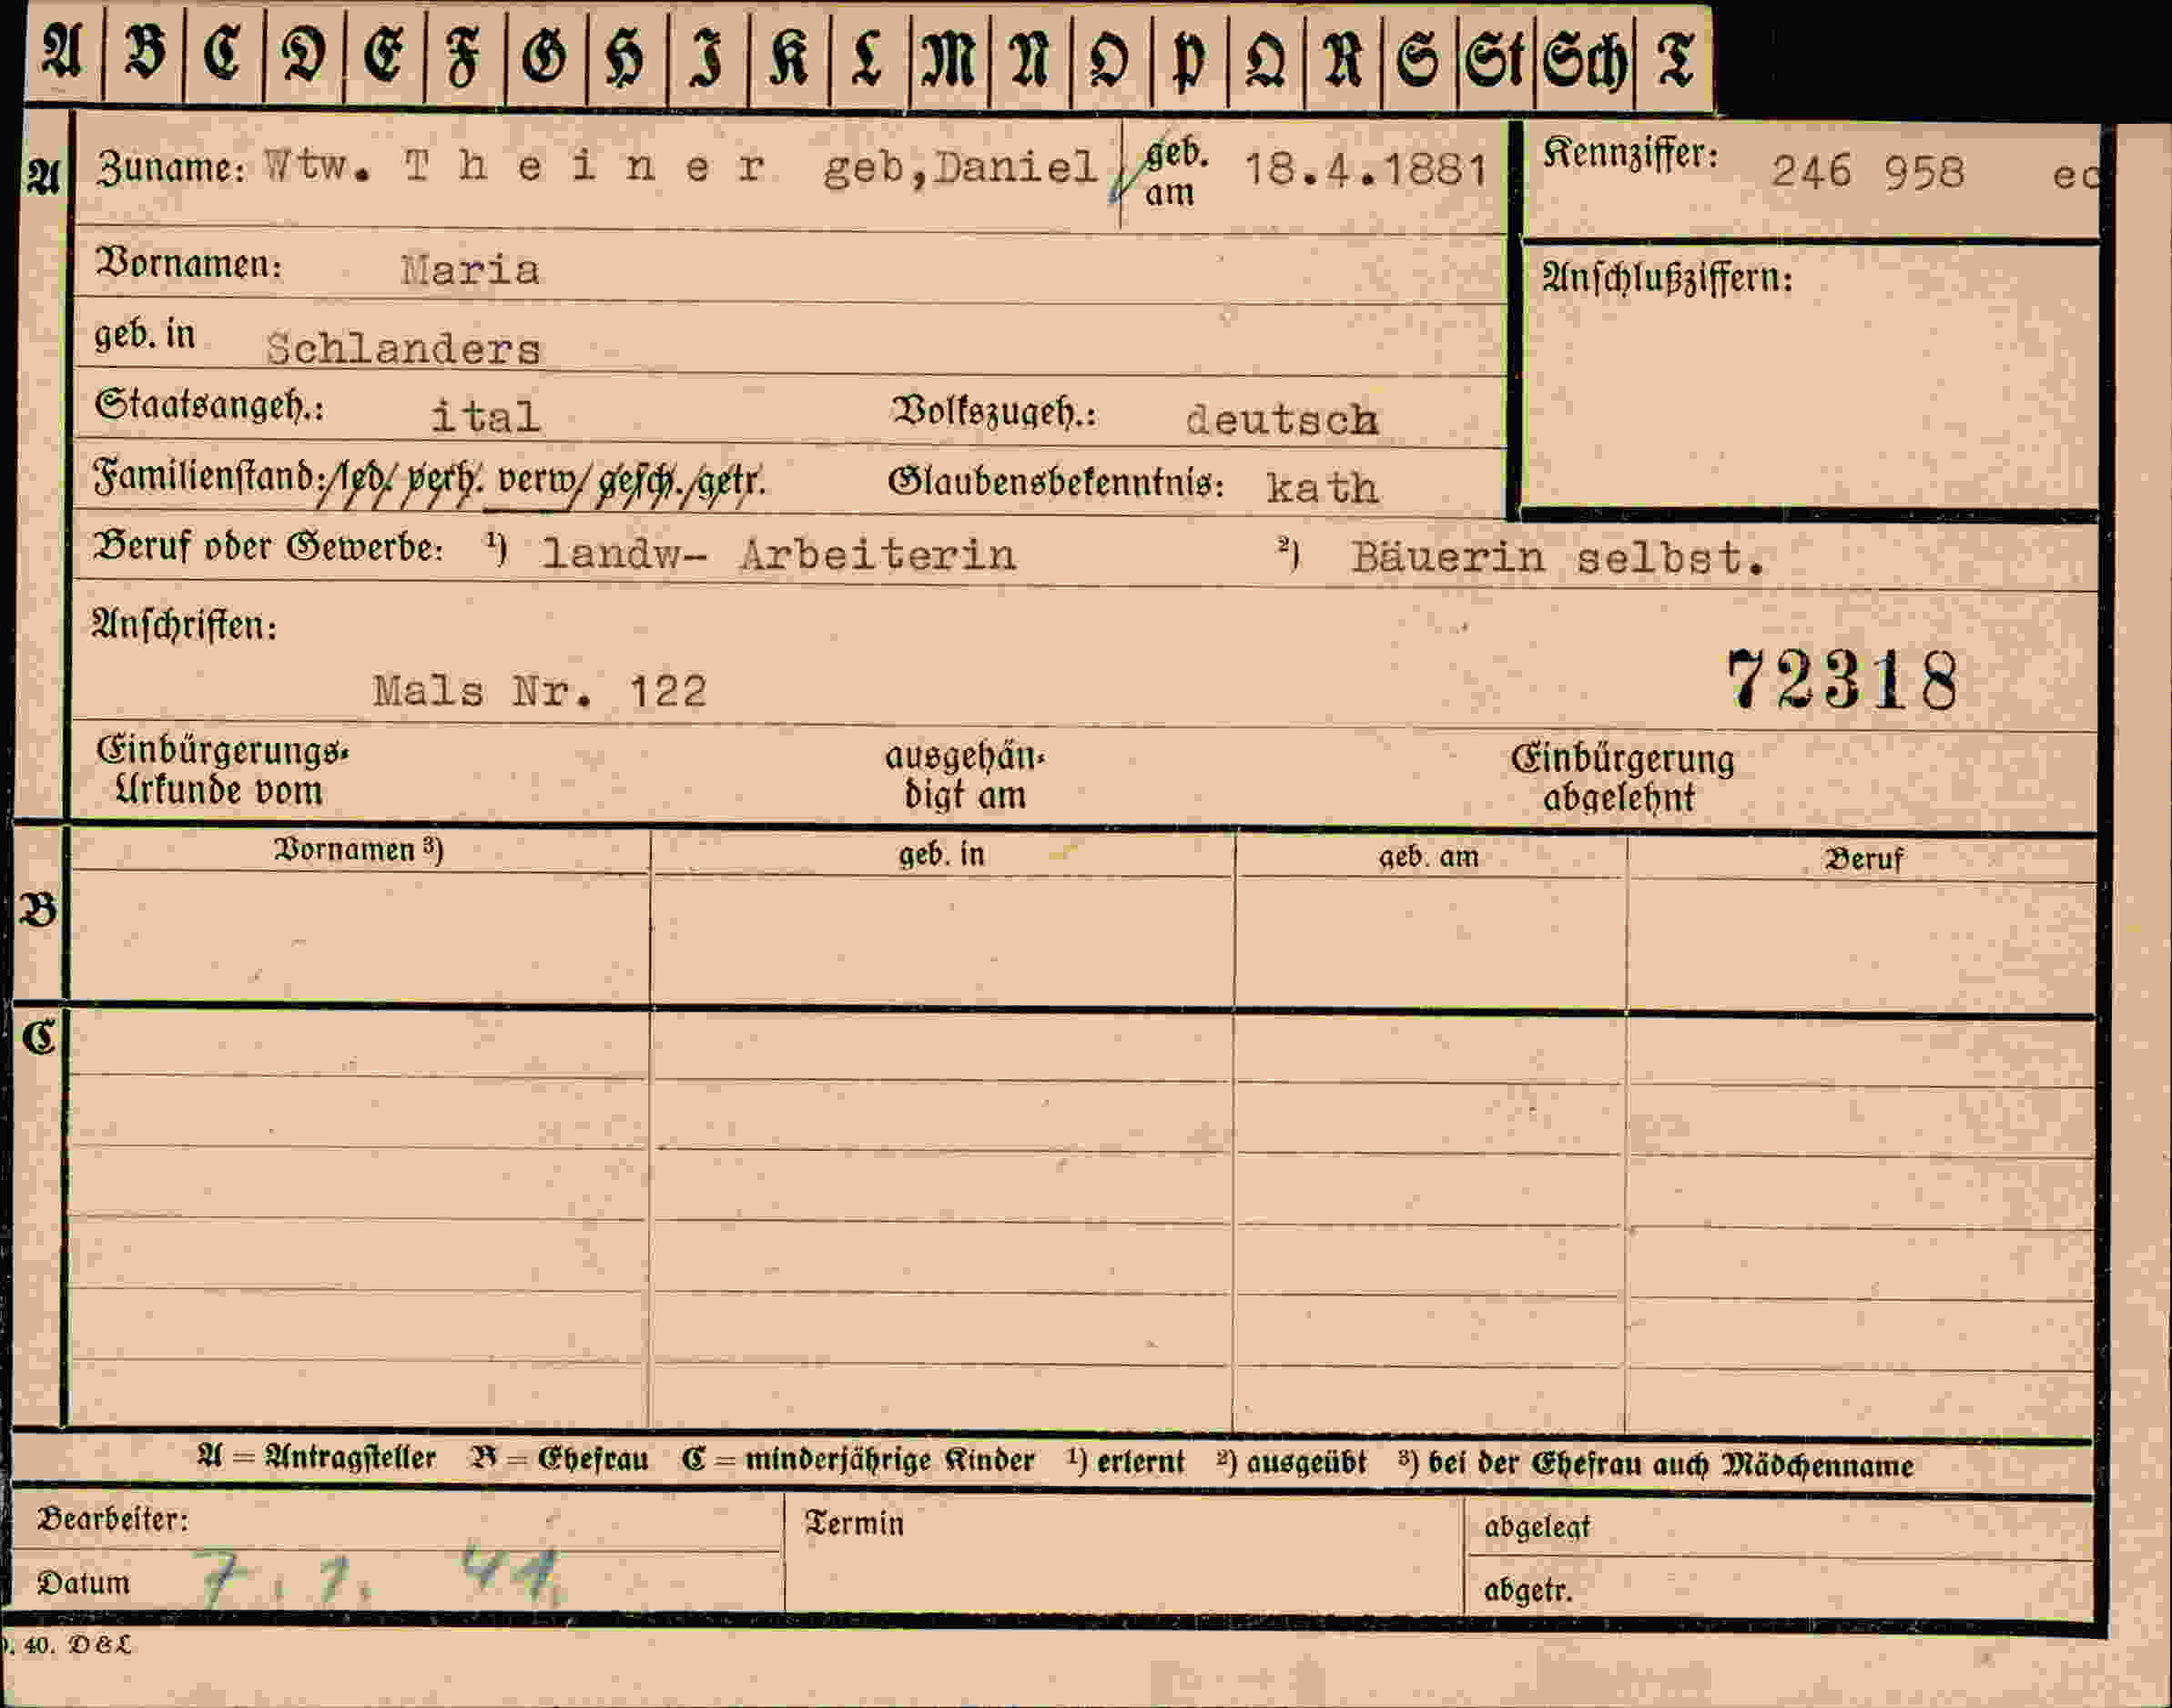 A B C D E F G H I K L M N O P Q R S St Sch T
A Zuname: Wtw. T h e i n e r geb,Daniel geb. am 18.4.1881 Kennziffer: 246 958
Vornamen: Maria
Anschlußziffern:
geb. in Schlanders
Staatsangeh.: ital Volkszugeh.: deutsch
Familienstand: led. verh. verw. gesch. getr. Glaubensbekenntnis: kath
Beruf oder Gewerbe: ¹) landw- Arbeiterin ²) Bäuerin selbst.
Anschriften:
72318
Mals Nr. 122
Einbürgerungs- ausgehän- Einbürgerung
Urkunde vom digt am abgelehnt
Vornamen ³) geb. in geb. am Beruf
B
C
A = Antragsteller B = Ehefrau C = minderjährige Kinder ¹) erlernt ²) ausgeübt ³) bei der Ehefrau auch Mädchenname
Bearbeiter: Termin abgelegt
Datum 7. 1. 41. abgetr.
40. D&L